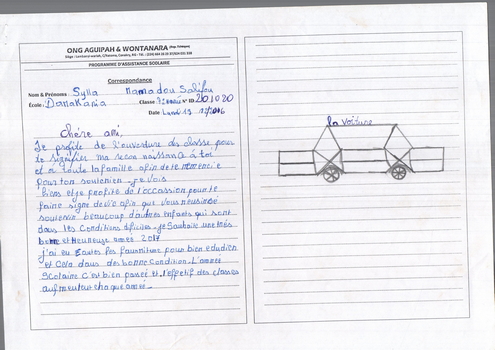 ONG AGUIPAH & WONTANARA
PROGRAMME D'ASSISTANCE SCOLAIRE
Correspondance
Nom & Prénoms : Sylla Mamadou Salifou
École : Danakania Classe : N° ID 201020
Date Lundi 19
Chère ami
Je profite de l'ouverture des classe pour
te signifier ma reconnaissance à toi
et à toute la famille afin de te remercie
pour ton soutenien. je vais
biens et je profite de l'occassion pour te
faire signe de vie afin que
soutenir beaucoup d'autres enfants qui sont
dans les conditions dificiles. je Souhaite une très
bonne et Heureuse année 2017
j'ai eu toutes les fourniture pour bien etudier
et Cela dans des bonne Condition. L'année
scolaire c'est bien passée et l'effectif des classes
augmentent chaque année.
la voiture